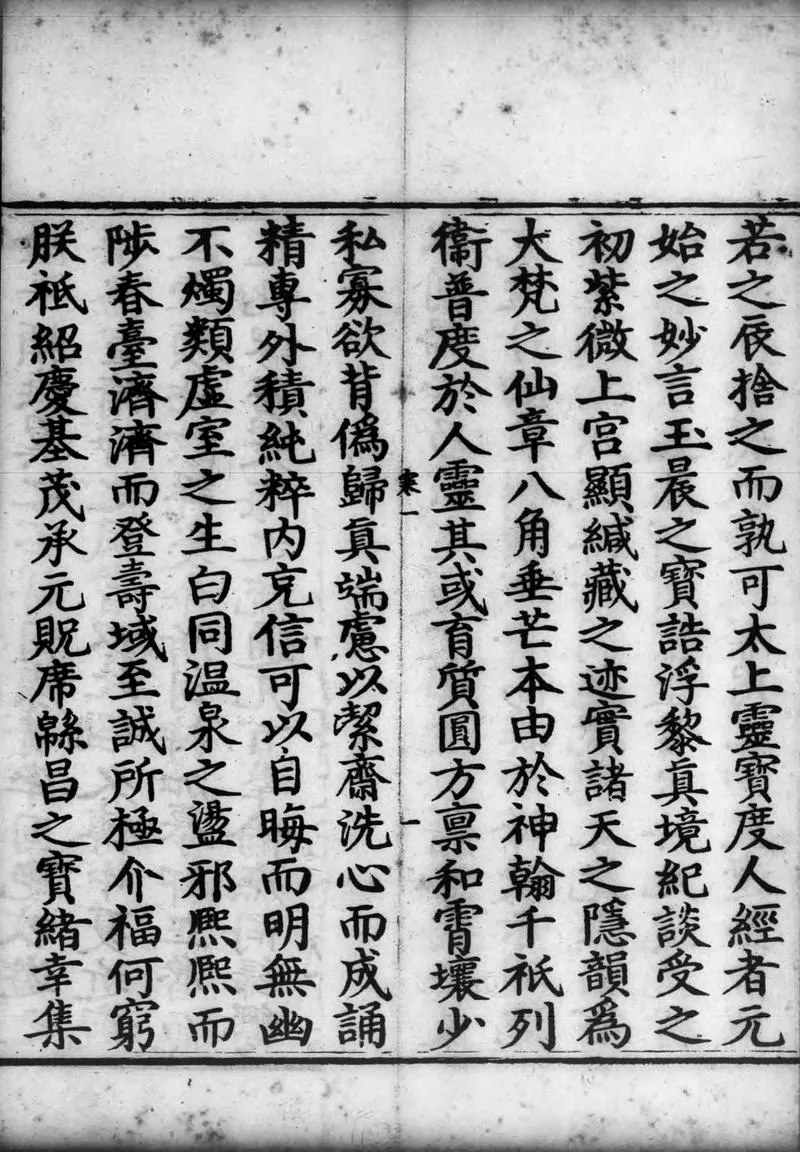 若之辰捨之而孰可太上靈寶度人經者元
始之妙言玉晨之寶誥浮黎真境紀談受之
初紫微上宮顯緘藏之迹實諸天之隱韻爲
大梵之仙章八角垂芒本由於神翰千祇列
衞普度於人靈其或育質圓方禀和霄壤少
寒一
一
私寡欲背僞歸真端慮以絜齋洗心而成誦
精專外積純粹内充信可以自晦而明無幽
不燭類虛室之生白同温泉之盪邪熈熈而
陟春臺濟濟而登壽域至誠所極介福何窮
朕祗紹慶基茂承元貺席緜昌之寶緒幸集